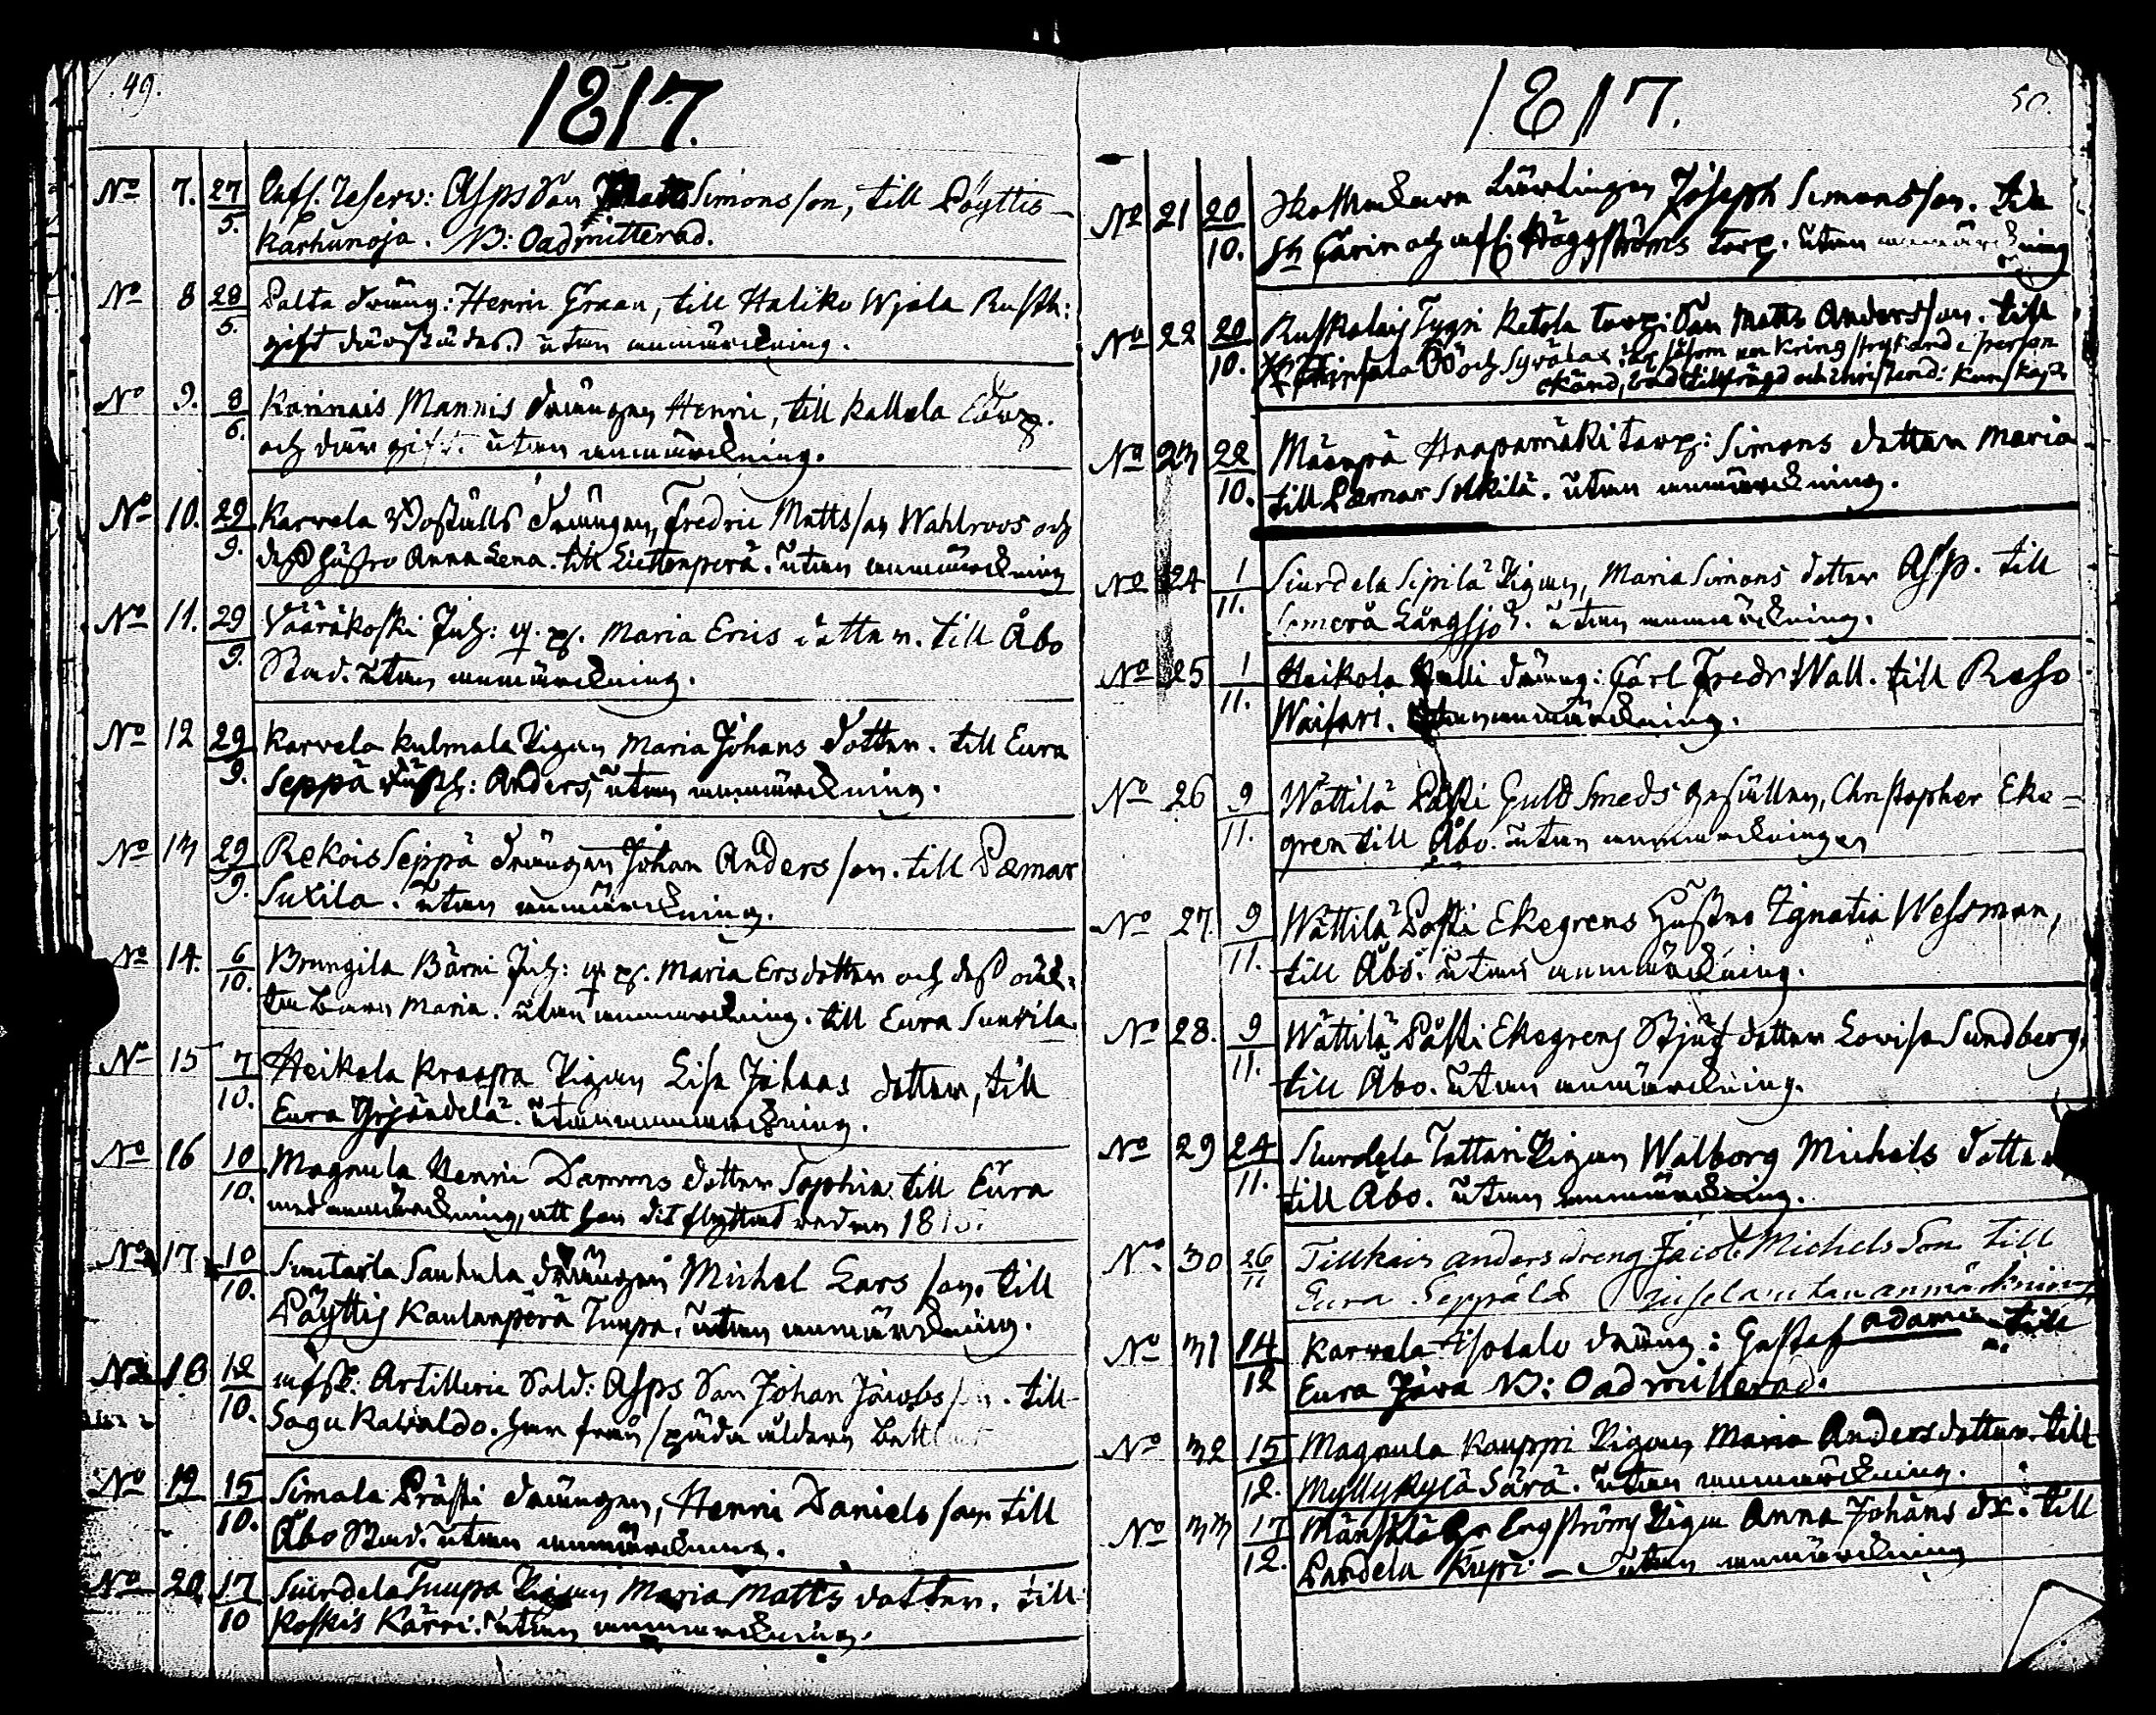 49.
1817.
No 7. 27/5. Afs. Reserv: Asps Son Matts Simonsson, till Pöyttis
Karhunoja. NB: Oadmitterad.
No 8 28/5. Palta dräng: Henric Graan, till Haliko Wjala Rusth:
gift därstädes. utan anmärckning.
No 9. 8/6. Karinais Mannis drängen Henric, till Kallela
och där gift. utan anmärckning.
No 10. 29/9. Karvela Boställs drängen, Fredric Mattsson Wahlroos och
dess Hustro Anna Lena. till Liettenperä. utan anmärckning
No 11. 29/9. Vääräkoski Inh: q. ps. Maria Erics dotter. till Åbo
Stad. utan anmärckning.
No 12 29/9. Karvela Kulmala Pigan Maria Johans dotter. till Eura
Seppä Anders, utan anmärckning.
No 13 29/9. Rekois Seppä drängen Johan Andersson. till Pemar
Suxila. utan anmärckning.
No 14. 6/10. Brungila Bärni Inh: q. ps. Maria Ersdotter och dess oäk-
ta Barn Maria. utan anmärckning. till Eura Sunkila.
No 15 7/10. Heikola Kraapa Pigan Lisa Johans dotter, till
Eura Yrjändelä. utan anmärckning.
No 16 10/10. Magnula Henric Damms dotter Sophia till Eura
med anmärckning, att hon dit flyttat redan
No 17 10/10. Simtarla Sauhula drängen Michel Larsson. till
Pöyttis Kaulanperä Tuupa. utan anmärckning.
No 18 12/10. Artillerie Sold: Asps Son Johan Jacobs. till
Sagu Karvaldo. har från späda åldern
No 19 15/10. Simala Prästi drängen, Henric Danielsson till
Åbo Stad. utan anmärckning.
No 20 17/10 Siurdela Tuupa Pigan Maria Matts dotter. till
Koskis Kärri. utan anmärckning.
1817.
50.
No 21 20/10. Lärlingen Joseph Simonsson. till
St Carin och Häggströms torp. utan anmärckning
No 22 20/10. Ruskalais Tyyri Ketola torp: Son Matts Andersson. till
och såsom en kringstrykande person
okänd, kunskap.
No 23 22/10. Mäenpä Haapamäki torp: Simons dotter Maria
till Pemar Solkilä. utan anmärckning.
No 24 1/11. Siurdela Sipilä Pigan, Maria Simons dotter Asp. till
Somerå Långsjö. utan anmärckning.
No 25 1/11. Heikola dräng: Carl Fredr: Wall. till Reso
Waisari. utan anmärckning.
No 26 9/11. Wättilä Påsti Guld Smeds gesällen, Christopher Eke-
gren till Åbo. utan anmärckningen
No 27. 9/11. Wättilä Påsti Ekegrens Hustru Ignatia Wessman,
till Åbo. utan anmärckning.
No 28. 9/11. Wättilä Påsti Ekegrens Stjuf dotter Lovisa Sundberg,
till Åbo. utan anmärckning.
No 29 24/11. Siurdela Tattari Pigan Walborg Michels dotter
till Åbo. utan anmärckning.
No 30 26/11 Tillkais anders dreng Jacob Michels Son till
Eura Seppälä utan anmärkning
No 31 14/12 Karvela Isotalo dräng: Gustaf adamss. till
Eura Jåva NB: Oadmitterad.
No 32 15/12. Magnula Kauppi Pigan Maria Andersdotter. till
Myllykylä Särä. utan anmärckning.
No 33 17/12. Engströms Pigan Anna Johans dr. till
Pardela Kupi - utan anmärckning